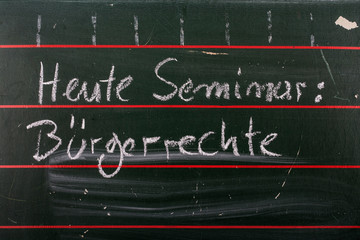 Heute Seminar:
Bürgerrechte